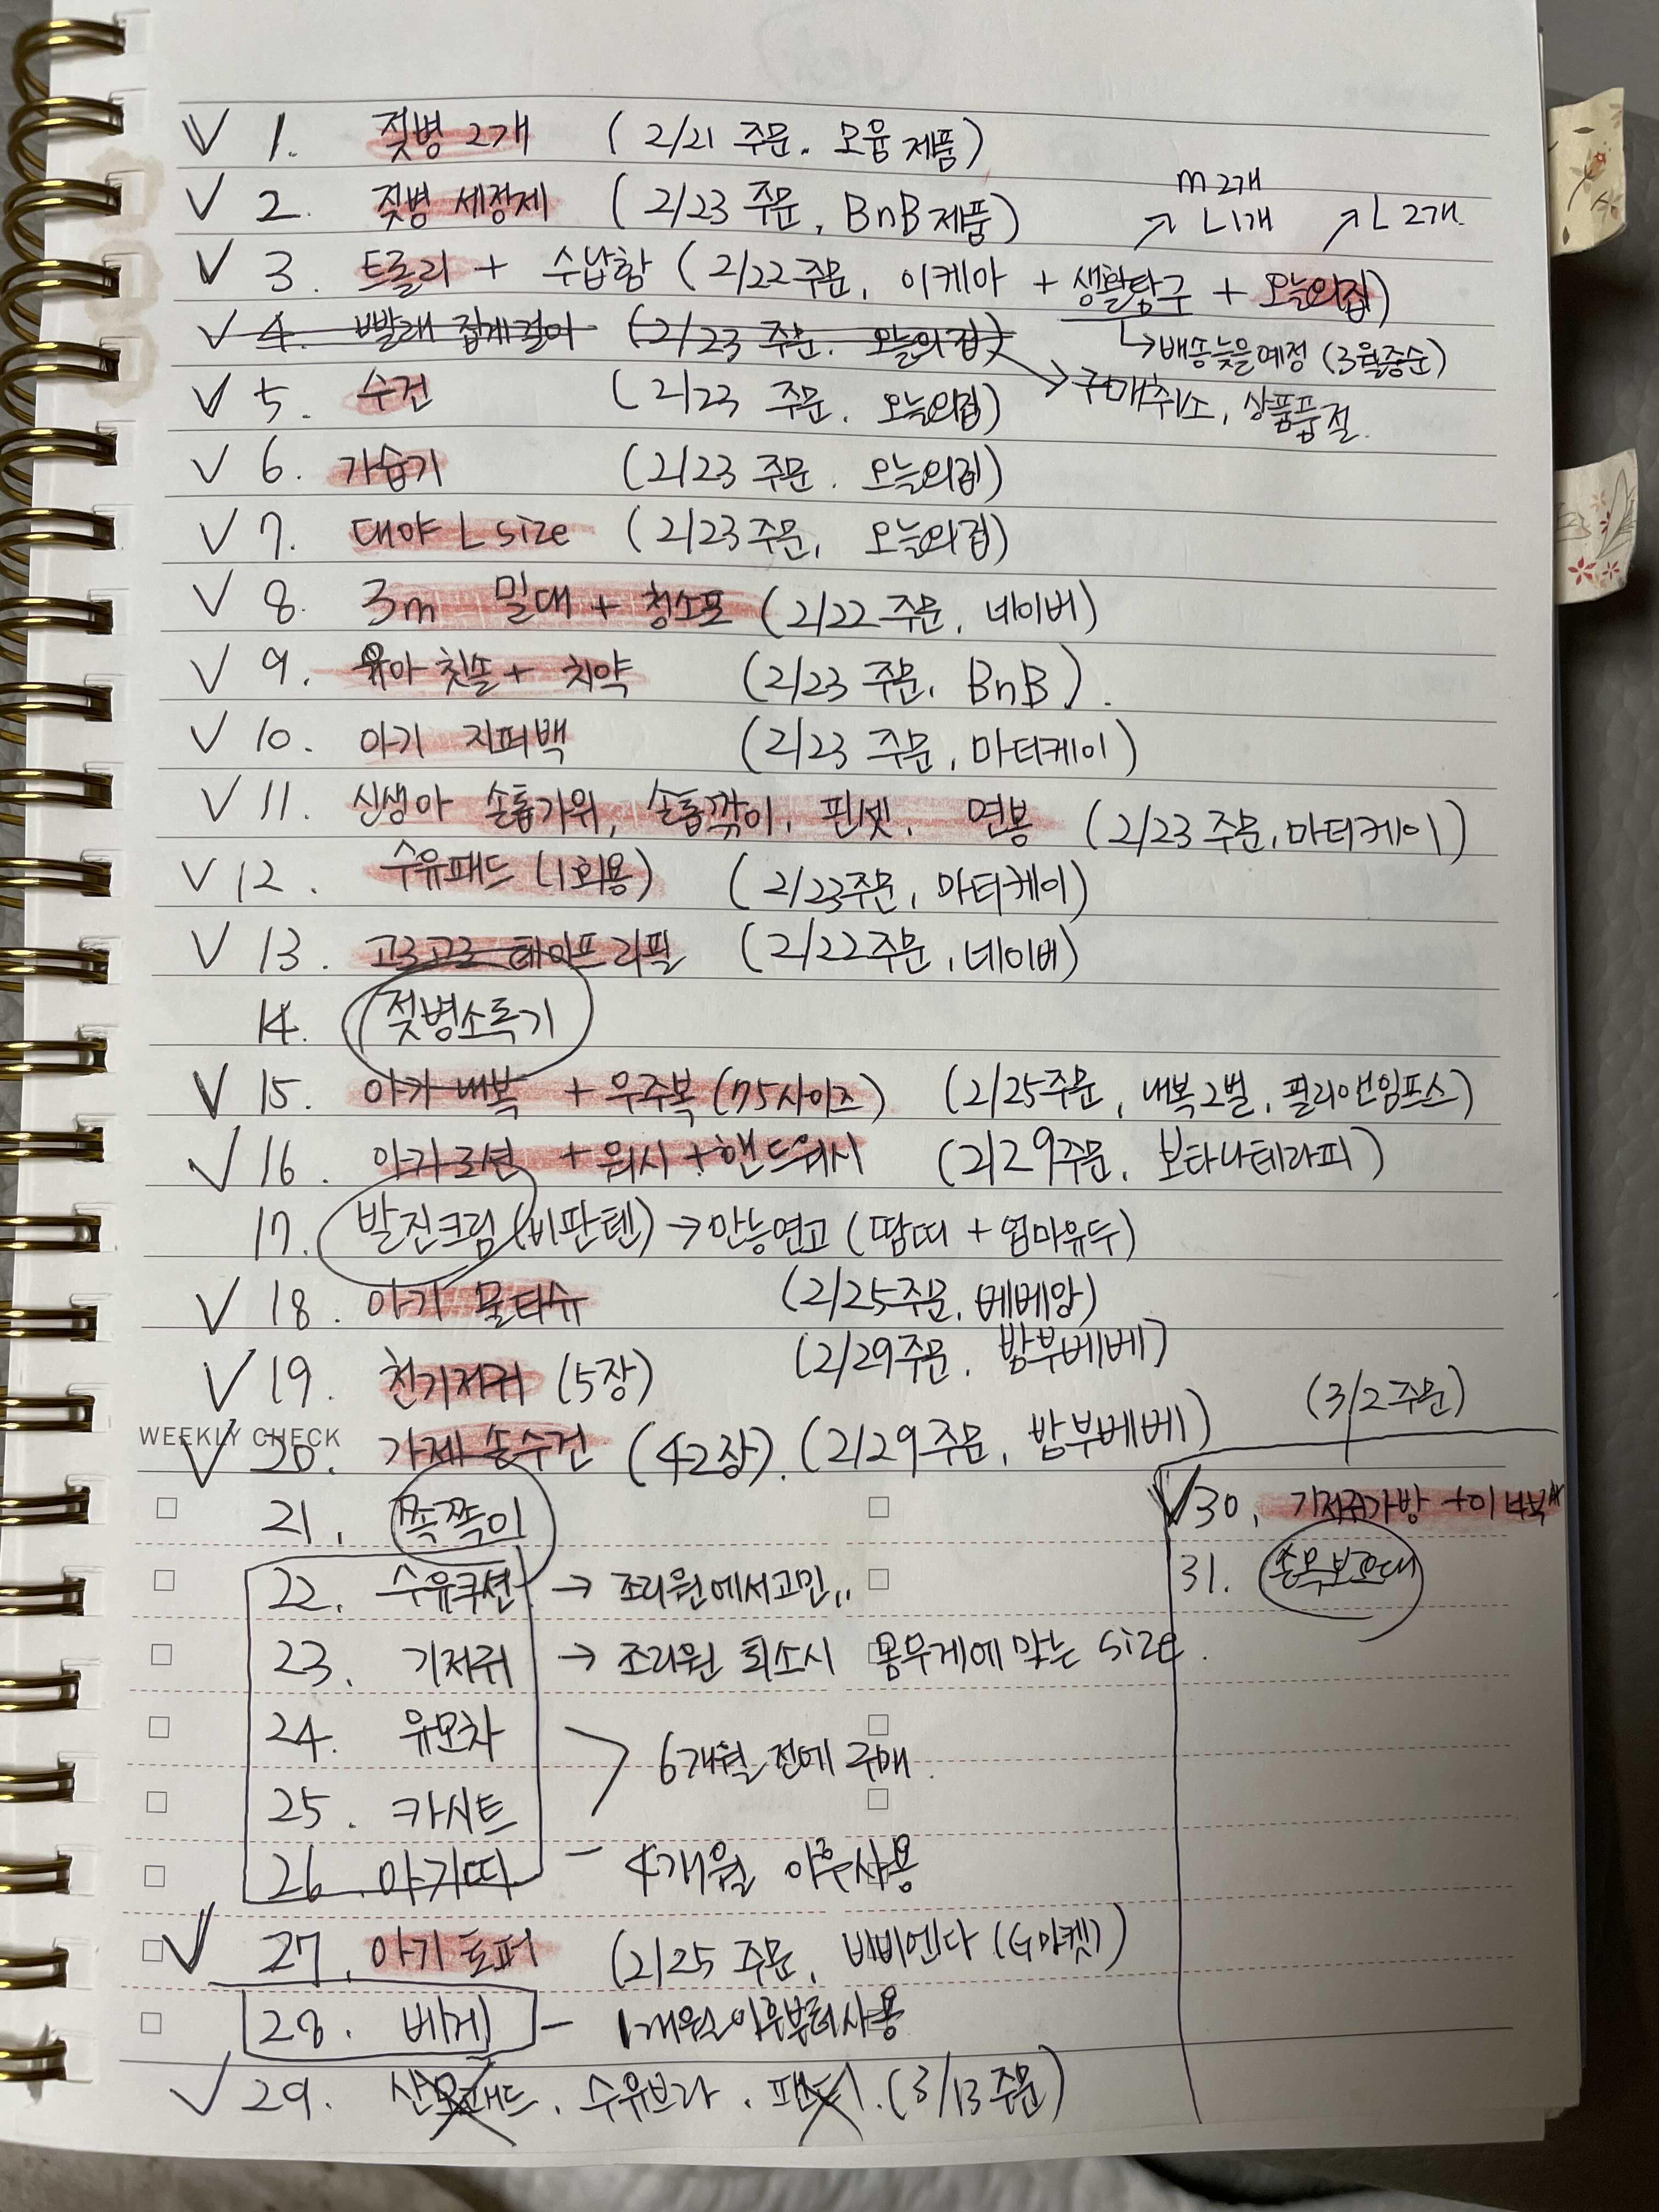 1. 젖병 2개 (2/21 주문. 모윰 제품)
m 2개
2. 젖병 세정제 (2/23 주문, BnB제품) ↗ L1개 ↗ L 2개
3. 트롤리 + 수납함 (2/22주문, 이케아 + 생활탐구 + 오늘의집)
4. 빨래 집게걸이 (2/23 주문. 오늘의집)
↳배송늦을예정 (3월중순)
→ 구매취소, 상품품절.
5. 수건 (2/23 주문. 오늘의집)
6. 가습기 (2/23 주문. 오늘의집)
7. 대야 L size (2/23주문, 오늘의집)
8. 3m 밀대 + 청소포 (2/22주문, 네이버)
9. 유아 칫솔 + 치약 (2/23 주문, BnB).
10. 아기 지퍼백 (2/23 주문, 마더케이)
11. 신생아 손톱가위, 손톱깎이, 핀셋, 면봉 (2/23 주문, 마더케이)
12. 수유패드 (1회용) (2/23주문, 마더케이)
13. 고고 테이프리필 (2/22주문, 네이버)
14. 젖병소독기
15. 아가 내복 + 우주복 (75사이즈) (2/25주문, 내복2벌, 필리앤임프스)
16. 아가로션 + 워시 + 핸드워시 (2/29주문, 보타니테라피)
17. 발진크림 (비판텐) → 만능연고 (땀띠 + 엄마유두)
18. 아기 물티슈 (2/25주문, 베베앙)
19. 천기저귀 (5장) (2/29주문, 밤부베베)
(3/2주문)
WEEKLY CHECK
20. 가제 손수건 (42장). (2/29주문, 밤부베베)
21. 쪽쪽이
30. 기저귀가방 + 이너백
22. 수유쿠션 → 조리원에서고민..
31. 손목보호대
23. 기저귀 → 조리원 퇴소시 몸무게에 맞는 size.
24. 유모차
6개월 전에 구매.
25. 카시트
26. 아기띠 - 4개월 이후사용
27. 아기 토퍼 (2/25 주문, 비비엔다 (G마켓))
28. 베개 - 1개월이후부터사용
29. 산모패드. 수유브라. 팬티. (3/13 주문)